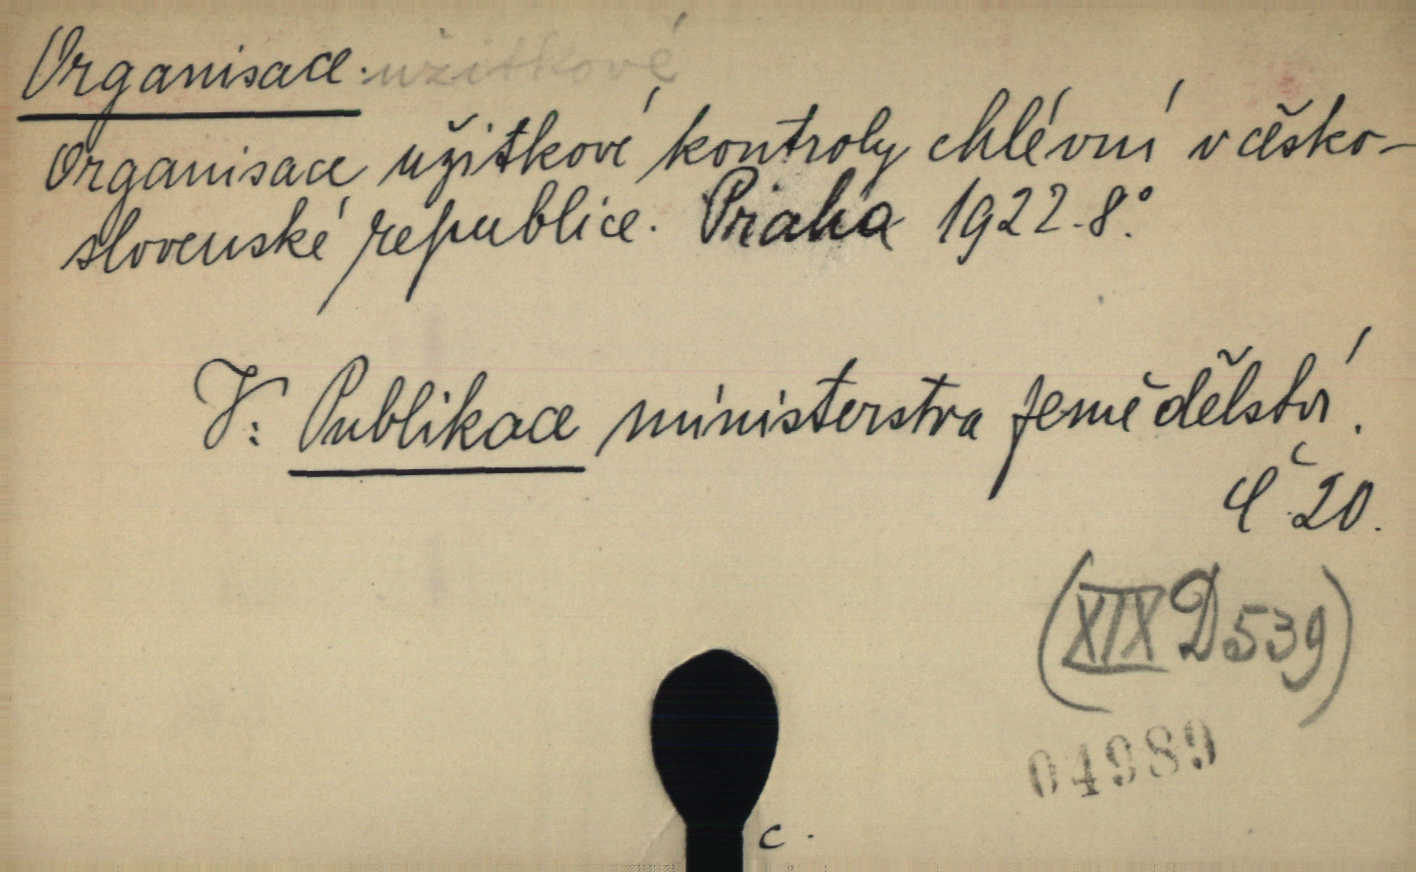 Organisace. užitkové
Organisace užitkové kontroly chlévní v česko-
slovenské republice. Praha 1922. 8°.
V: Publikace ministerstva zemědělství.
Č. 20.
(XIX D 539)
04989
c.